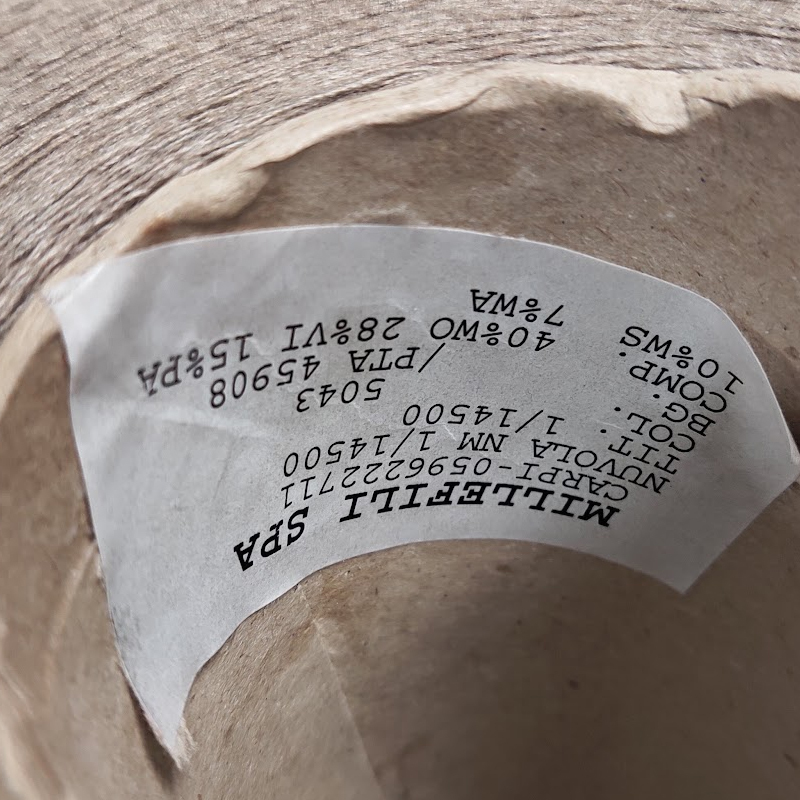 MILLEFILI SPA
CARPI-0596222711
NUVOLA NM 1/14500
TIT. 1/14500
COL. 5043
BG. /PTA 45908
COMP. 40%WO 28%VI 15%PA
10%WS 7%WA